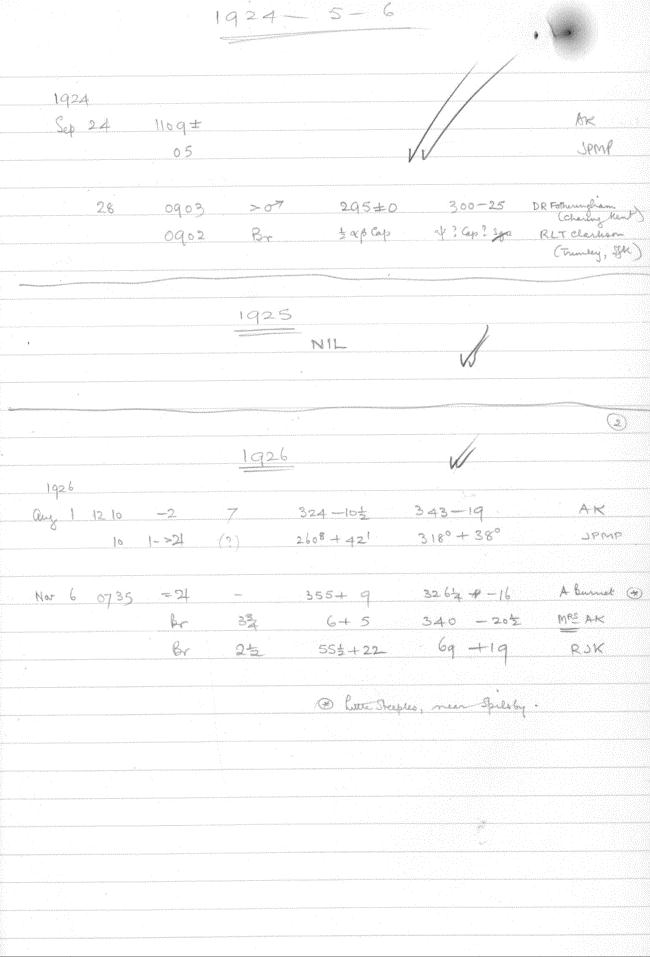 1924 – 5 – 6
1924
Sep 24 1109± AK
05 JPMP
28 0903 >♂ 295±0 300–25 DR Fotheringham
(Charing Kent)
0902 Br ½ αβ Cap ψ ? Cap ? RLT Clarkson
(Trimley, Sfk)
1925
NIL
②
1926
1926
Aug 1 12 10 –2 7 324–10½ 343–19 AK
10 1–>♃ (?) 260° + 42' 318° + 38° JPMP
Nov 6 0735 =♃ – 355+ 9 326¼ –16 A Burnet ⊛
Br 3¾ 6+5 340 –20½ Mrs AK
Br 2½ 55½+22 69 +19 RJK
⊛ Little Steeples, near Spilsby.